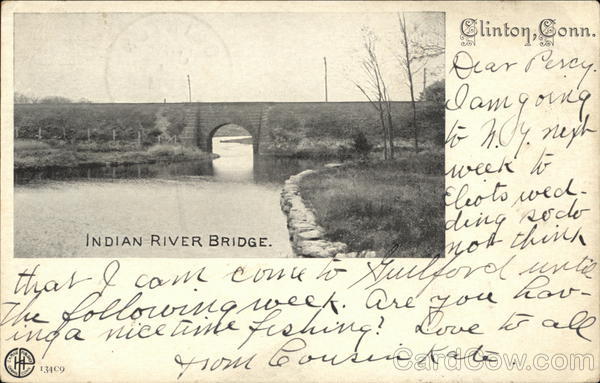 Clinton, Conn.
Dear Percy.
I am going
to N.Y. next
week to
Eliots wed-
ding so do
not think
INDIAN RIVER BRIDGE.
that I can come to Guilford until
the following week. Are you hav-
ing a nice time fishing? Love to all
from Cousin Kate.
13409
CardCow.com